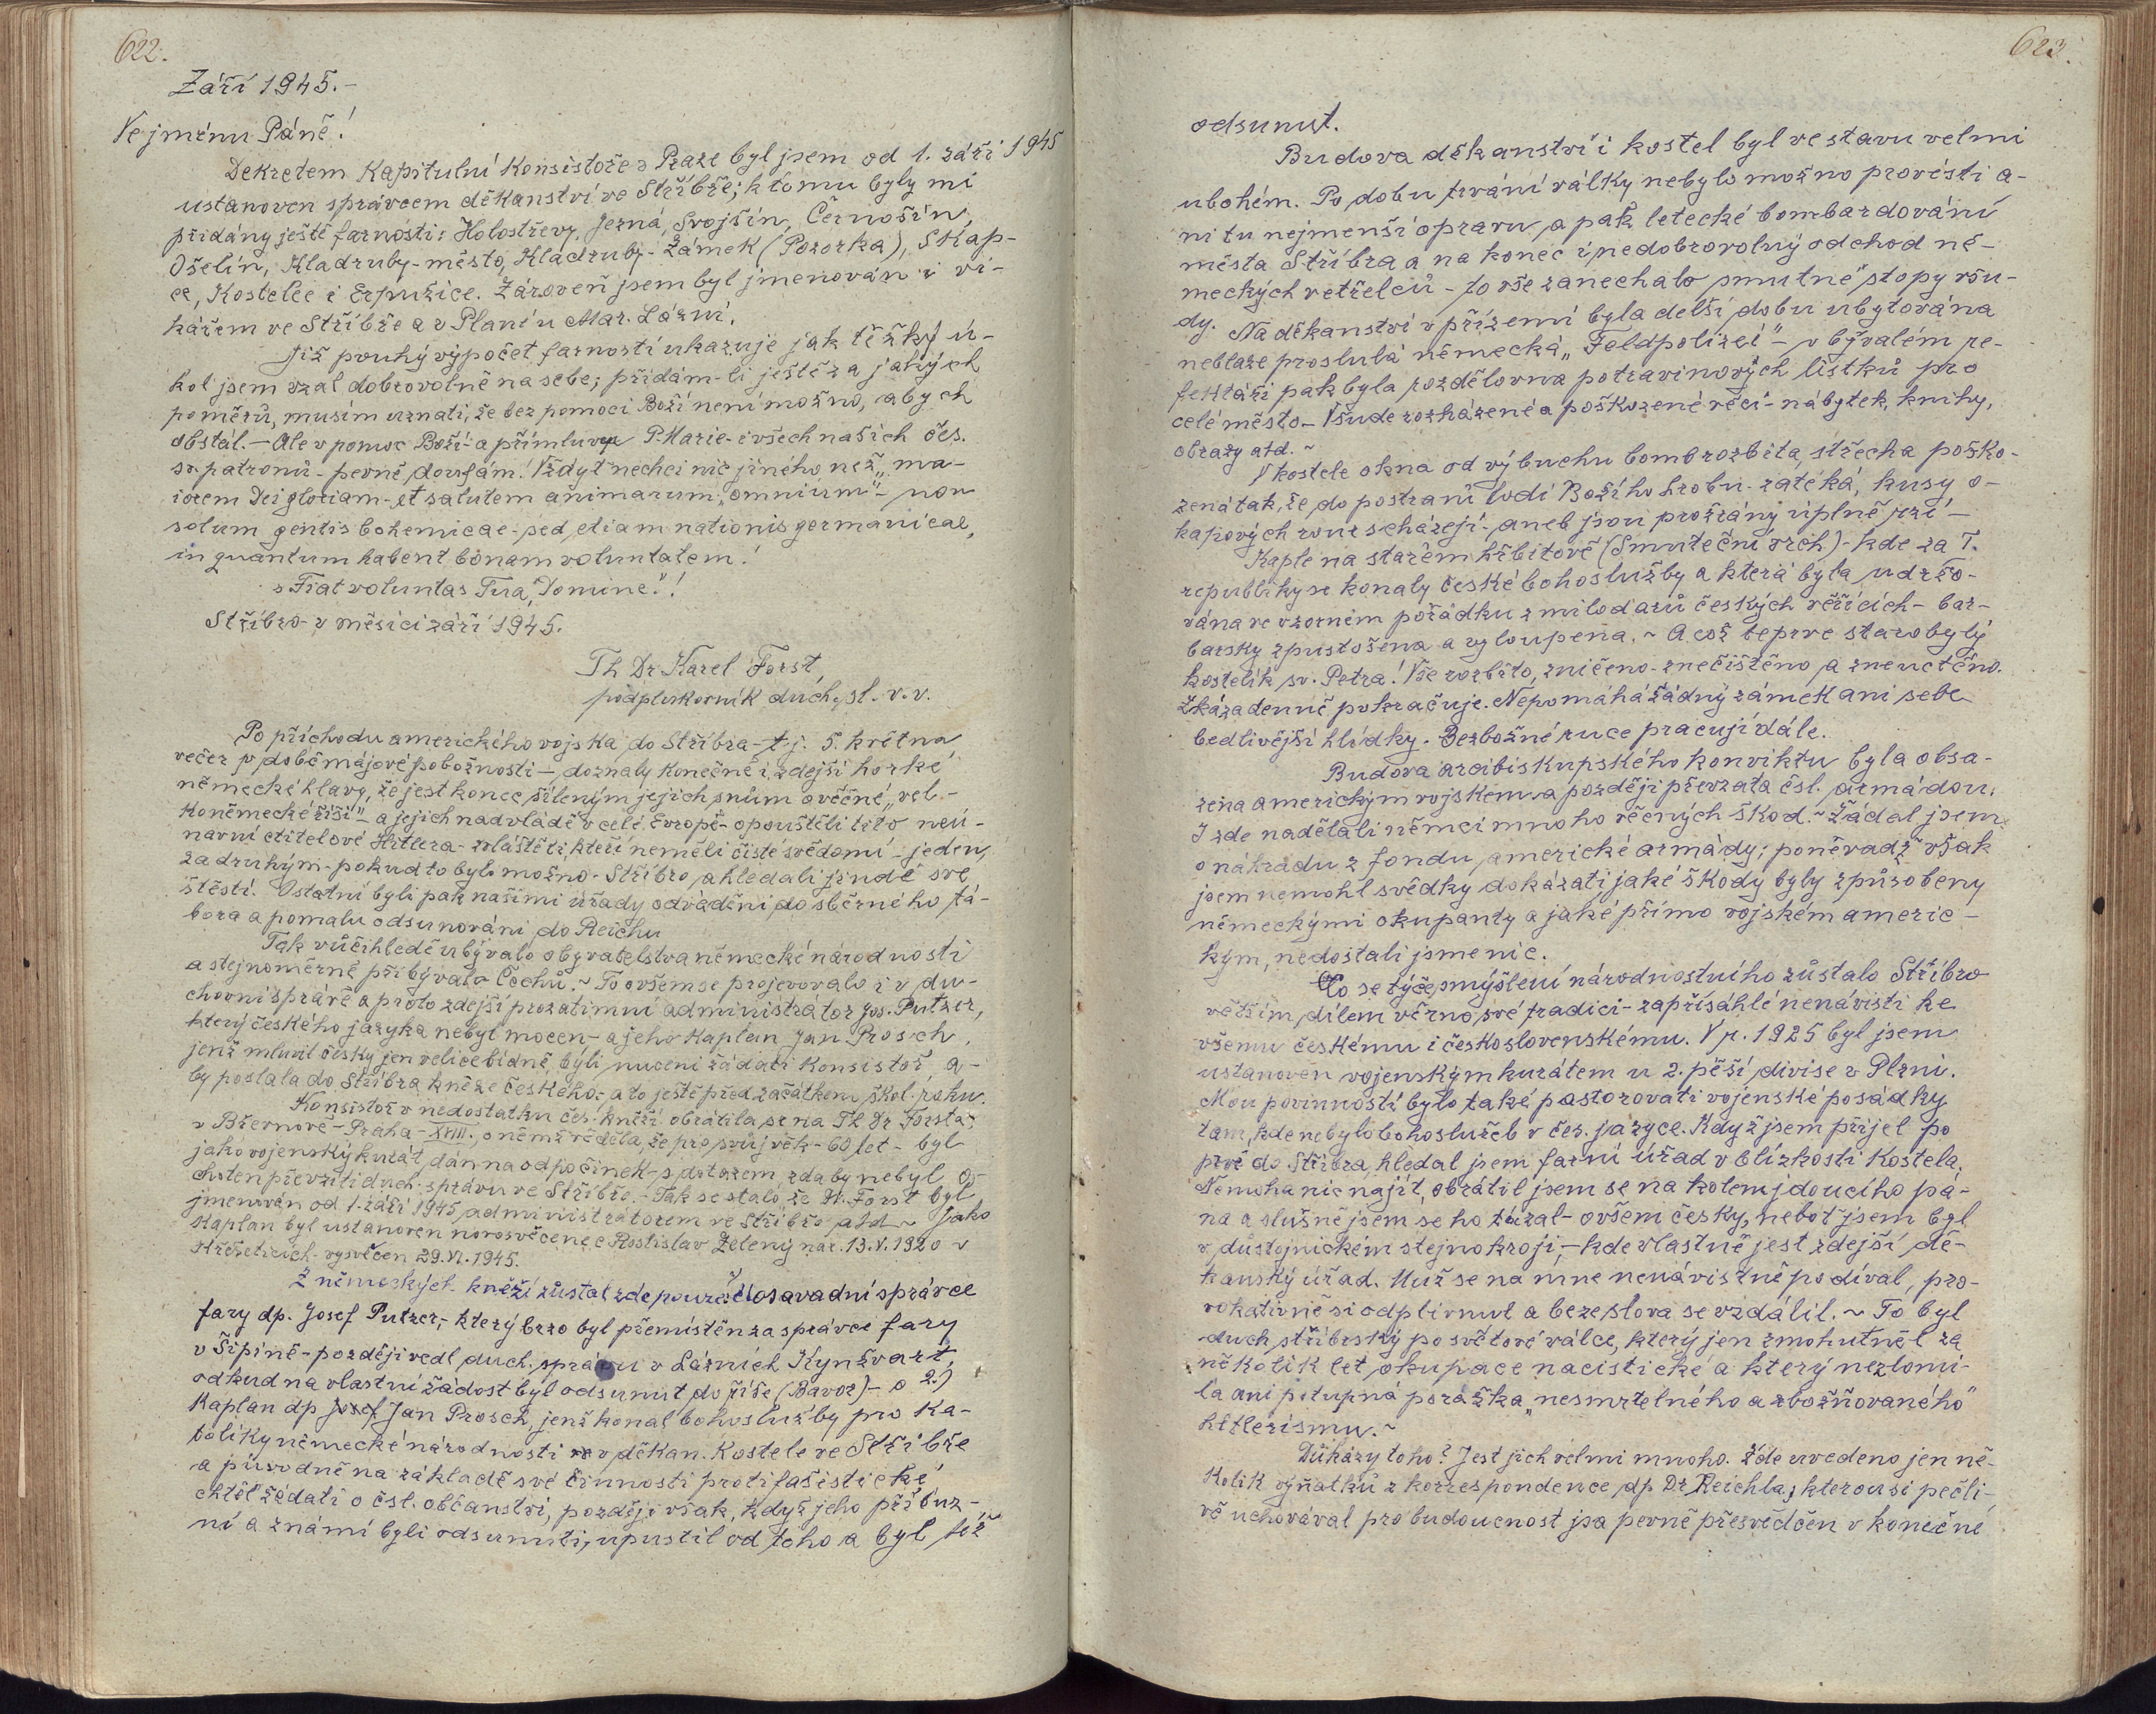 622.
Září 1945.-
Ve jménu Páně!
Dekretem Kapitulní Konsistoře v Praze byl jsem od 1. září 1945
ustanoven správcem děkanství ve Stříbře; k tomu byly mi
přidány ještě farnosti: Holostřevy, Jezná, Svojšín, Černošín,
Ošelín, Kladruby-město, Kladruby-Zámek (Pozorka), Skap-
ce, Kostelec i Erpužice. Zároveň jsem byl jmenován i vi-
kářem ve Stříbře a v Plané u Mar. Lázní.
Již pouhý výpočet farností ukazuje jak těžký ú-
kol jsem vzal dobrovolně na sebe; přidám-li ještě za jakých
poměrů, musím uznati, že bez pomoci Boží není možno, abych
obstál. - Ale v pomoc Boží - a přímluvu P. Marie - i všech našich čes.
sv. patronů - pevně doufám! Vždyť nechci nic jiného než „ma-
iorem Dei gloriam - et salutem animarum „omnium" - non
solum gentis bohemicae - sed etiam nationis germanicae,
in quantum habent bonam voluntatem!
„Fiat voluntas Tua, Domine"!
Stříbro - v měsíci září 1945.
Th Dr Karel Forst,
podplukovník duch. sl. v. v.
Po příchodu amerického vojska do Stříbra - t.j. 5. května
večer v době májové pobožnosti - doznaly konečně i zdejší horké
německé hlavy, že jest konec šíleným jejich snům o věčné „vel-
koněmecké říši" - a jejich nadvládě v celé Evropě - opouštěli tito neú-
navní ctitelové Hitlera - zvláště ti, kteří neměli čisté svědomí - jeden
za druhým - pokud to bylo možno - Stříbro a hledali jinde své
štěstí. Ostatní byli pak našimi úřady odváděni do sběrného tá-
bora a pomalu odsunováni do Reichu
Tak vůčihledě ubývalo obyvatelstva německé národnosti
a stejnoměrně přibývalo Čechů. ~ To ovšem se projevovalo i v du-
chovní správě a proto zdejší prozatimní administrátor Jos. Putzer,
který českého jazyka nebyl mocen - a jeho kaplan Jan Prosch,
jenž mluvil česky jen velice bídně, byli nuceni žádati Konsistoř a-
by poslala do Stříbra kněze českého - a to ještě před začátkem škol. roku.
Konsistoř v nedostatku čes. kněží obrátila se na Th Dr Forsta
v Břevnově - Praha - XVIII. o němž věděla, že pro svůj věk - 60 let - byl
jako vojenský kurát dán na odpočinek - s dotazem, zda by nebyl o-
choten převzíti duch. správu ve Stříbře. - Tak se stalo, že Dr. Forst byl
jmenován od 1. září 1945 administrátorem ve Stříbře atd ~ Jako
kaplan byl ustanoven novosvěcenec Rostislav Zelený nar. 13.V.1920 v
Střížeticích - vysvěcen 29.VI.1945.
Z německých kněží zůstal zde pouze dosavadní správce
fary dp. Josef Putzer, - který brzo byl přemístěn za správce fary
v Šipíně - později vedl duch. správu v Lázních Kynžvart,
odkud na vlastní žádost byl odsunut do říše (Bavor) - a 2.)
Kaplan dp Josef Jan Prosch, jenž konal bohoslužby pro ka-
tolíky německé národnosti v děkan. Kostele ve Stříbře
a původně na základě své činnosti protifašistické
chtěl žádati o čsl. občanství, později však, když jeho příbuz-
ní a známí byli odsunuti, upustil od toho a byl též
623.
odsunut.
Budova děkanství i kostel byl ve stavu velmi
ubohém. Po dobu trvání války nebylo možno provésti a-
ni tu nejmenší opravu, a pak letecké bombardování
města Stříbra a na konec i nedobrovolný odchod ně-
meckých vetřelců - to vše zanechalo smutné stopy všu-
dy. Na děkanství v přízemí byla delší dobu ubytována
neblaze proslulá německá „Feldpolizei" - v bývalém re-
fektáři pak byla rozdělovna potravinových lístků pro
celé město - Všude rozházené a poškozené věci - nábytek, knihy,
obrazy atd. ~
V kostele okna od výbuchu bomb rozbita, střecha poško-
zená tak, že do postranní lodi Božího hrobu - zatéká, kusy o-
kapových rour scházejí - aneb jsou prožrány úplně rzí -
Kaple na starém hřbitově (Smuteční vrch) - kde za I.
republiky se konaly české bohoslužby a která byla udržo-
vána ve vzorném pořádku z milodarů českých věřících - bar-
barsky zpustošena a vyloupena. ~ A což teprve starobylý
kostelík sv. Petra! Vše rozbito, zničeno - znečištěno a zneuctěno.
Zkáza denně pokračuje. Nepomáhá žádný zámek ani sebe
bedlivější hlídky. Bezbožné ruce pracují dále.
Budova arcibiskupského konviktu byla obsa-
zena americkým vojskem - a později převzata čsl. armádou.
I zde nadělali němci mnoho věcných škod. ~ Žádal jsem
o náhradu z fondu americké armády; poněvadž však
jsem nemohl svědky dokázati jaké škody byly způsobeny
německými okupanty a jaké přímo vojskem americ-
kým, nedostali jsme nic.
Co se týče smýšlení národnostního zůstalo Stříbro
větším dílem věrno své tradici - zapřísáhlé nenávisti ke
všemu českému i československému. V r. 1925 byl jsem
ustanoven vojenským kurátem u 2. pěší divise v Plzni.
Mou povinností bylo také pastorovati vojenské posádky
tam, kde nebylo bohoslužeb v čes. jazyce. Když jsem přijel po
prvé do Stříbra, hledal jsem farní úřad v blízkosti kostela.
Nemoha nic najít, obrátil jsem se na kolemjdoucího pá-
na a slušně jsem se ho tázal - ovšem česky, neboť jsem byl
v důstojnickém stejnokroji, - kde vlastně jest zdejší dě-
kanský úřad. Muž se na mne nenávistně podíval, pro-
vokativně si odplivnul a beze slova se vzdálil. ~ To byl
duch stříbrský po světové válce, který jen zmohutněl za
několik let okupace nacistické a který nezlomi-
la ani potupná porážka „nesmrtelného a zbožňovaného"
hitlerismu. ~
Důkazy toho? Jest jich velmi mnoho. Zde uvedeno jen ně-
kolik výňatků z korrespondence dp. Dr Reichla, kterou si pečli-
vě uchovával pro budoucnost jsa pevně přesvědčen v konečné